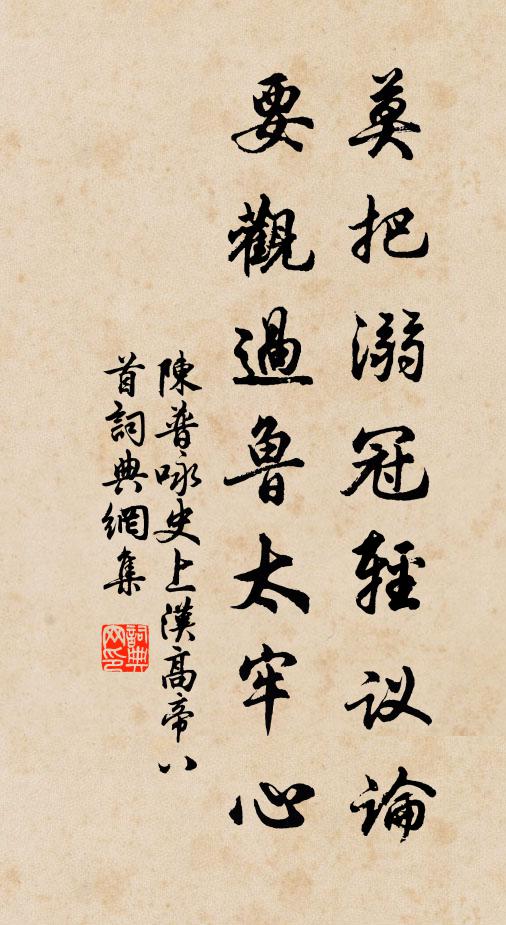 莫把溺冠輕议論
要觀過魯太牢心
陳普咏史上漢高帝八
首詞典網集
詞典網印